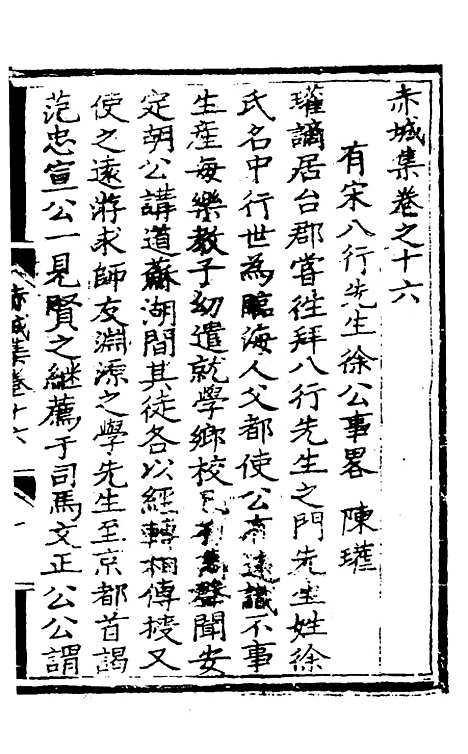 赤城集卷之十六
有宋八行先生徐公事畧 陳瓘
瓘謫居台郡嘗徃拜八行先生之門先生姓徐
氏名中行世為臨海人父都使公有遠識不事
生産每樂教子幼遣就學鄉校已有雋聲聞安
定胡公講道蘇湖間其徒各以經轉相傳授又
使之遠游求師友淵源之學先生至京都首謁
范忠宣公一見賢之継薦于司馬文正公公謂
赤城集卷十六
一